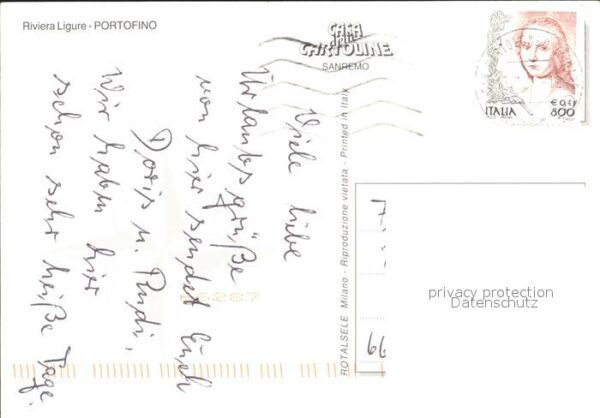 Riviera Ligure - PORTOFINO
CASA
DELLE
CARTOLINE
SANREMO
ITALIA
€ 0,41
800
Viele liebe
Urlaubsgrüße
von hier sendet Euch
Doris u. Rudi.
Wir haben hier
schon sehr heiße Tage.
ROTALSELE Milano - Riproduzione vietata - Printed in Italy
66
privacy protection
Datenschutz